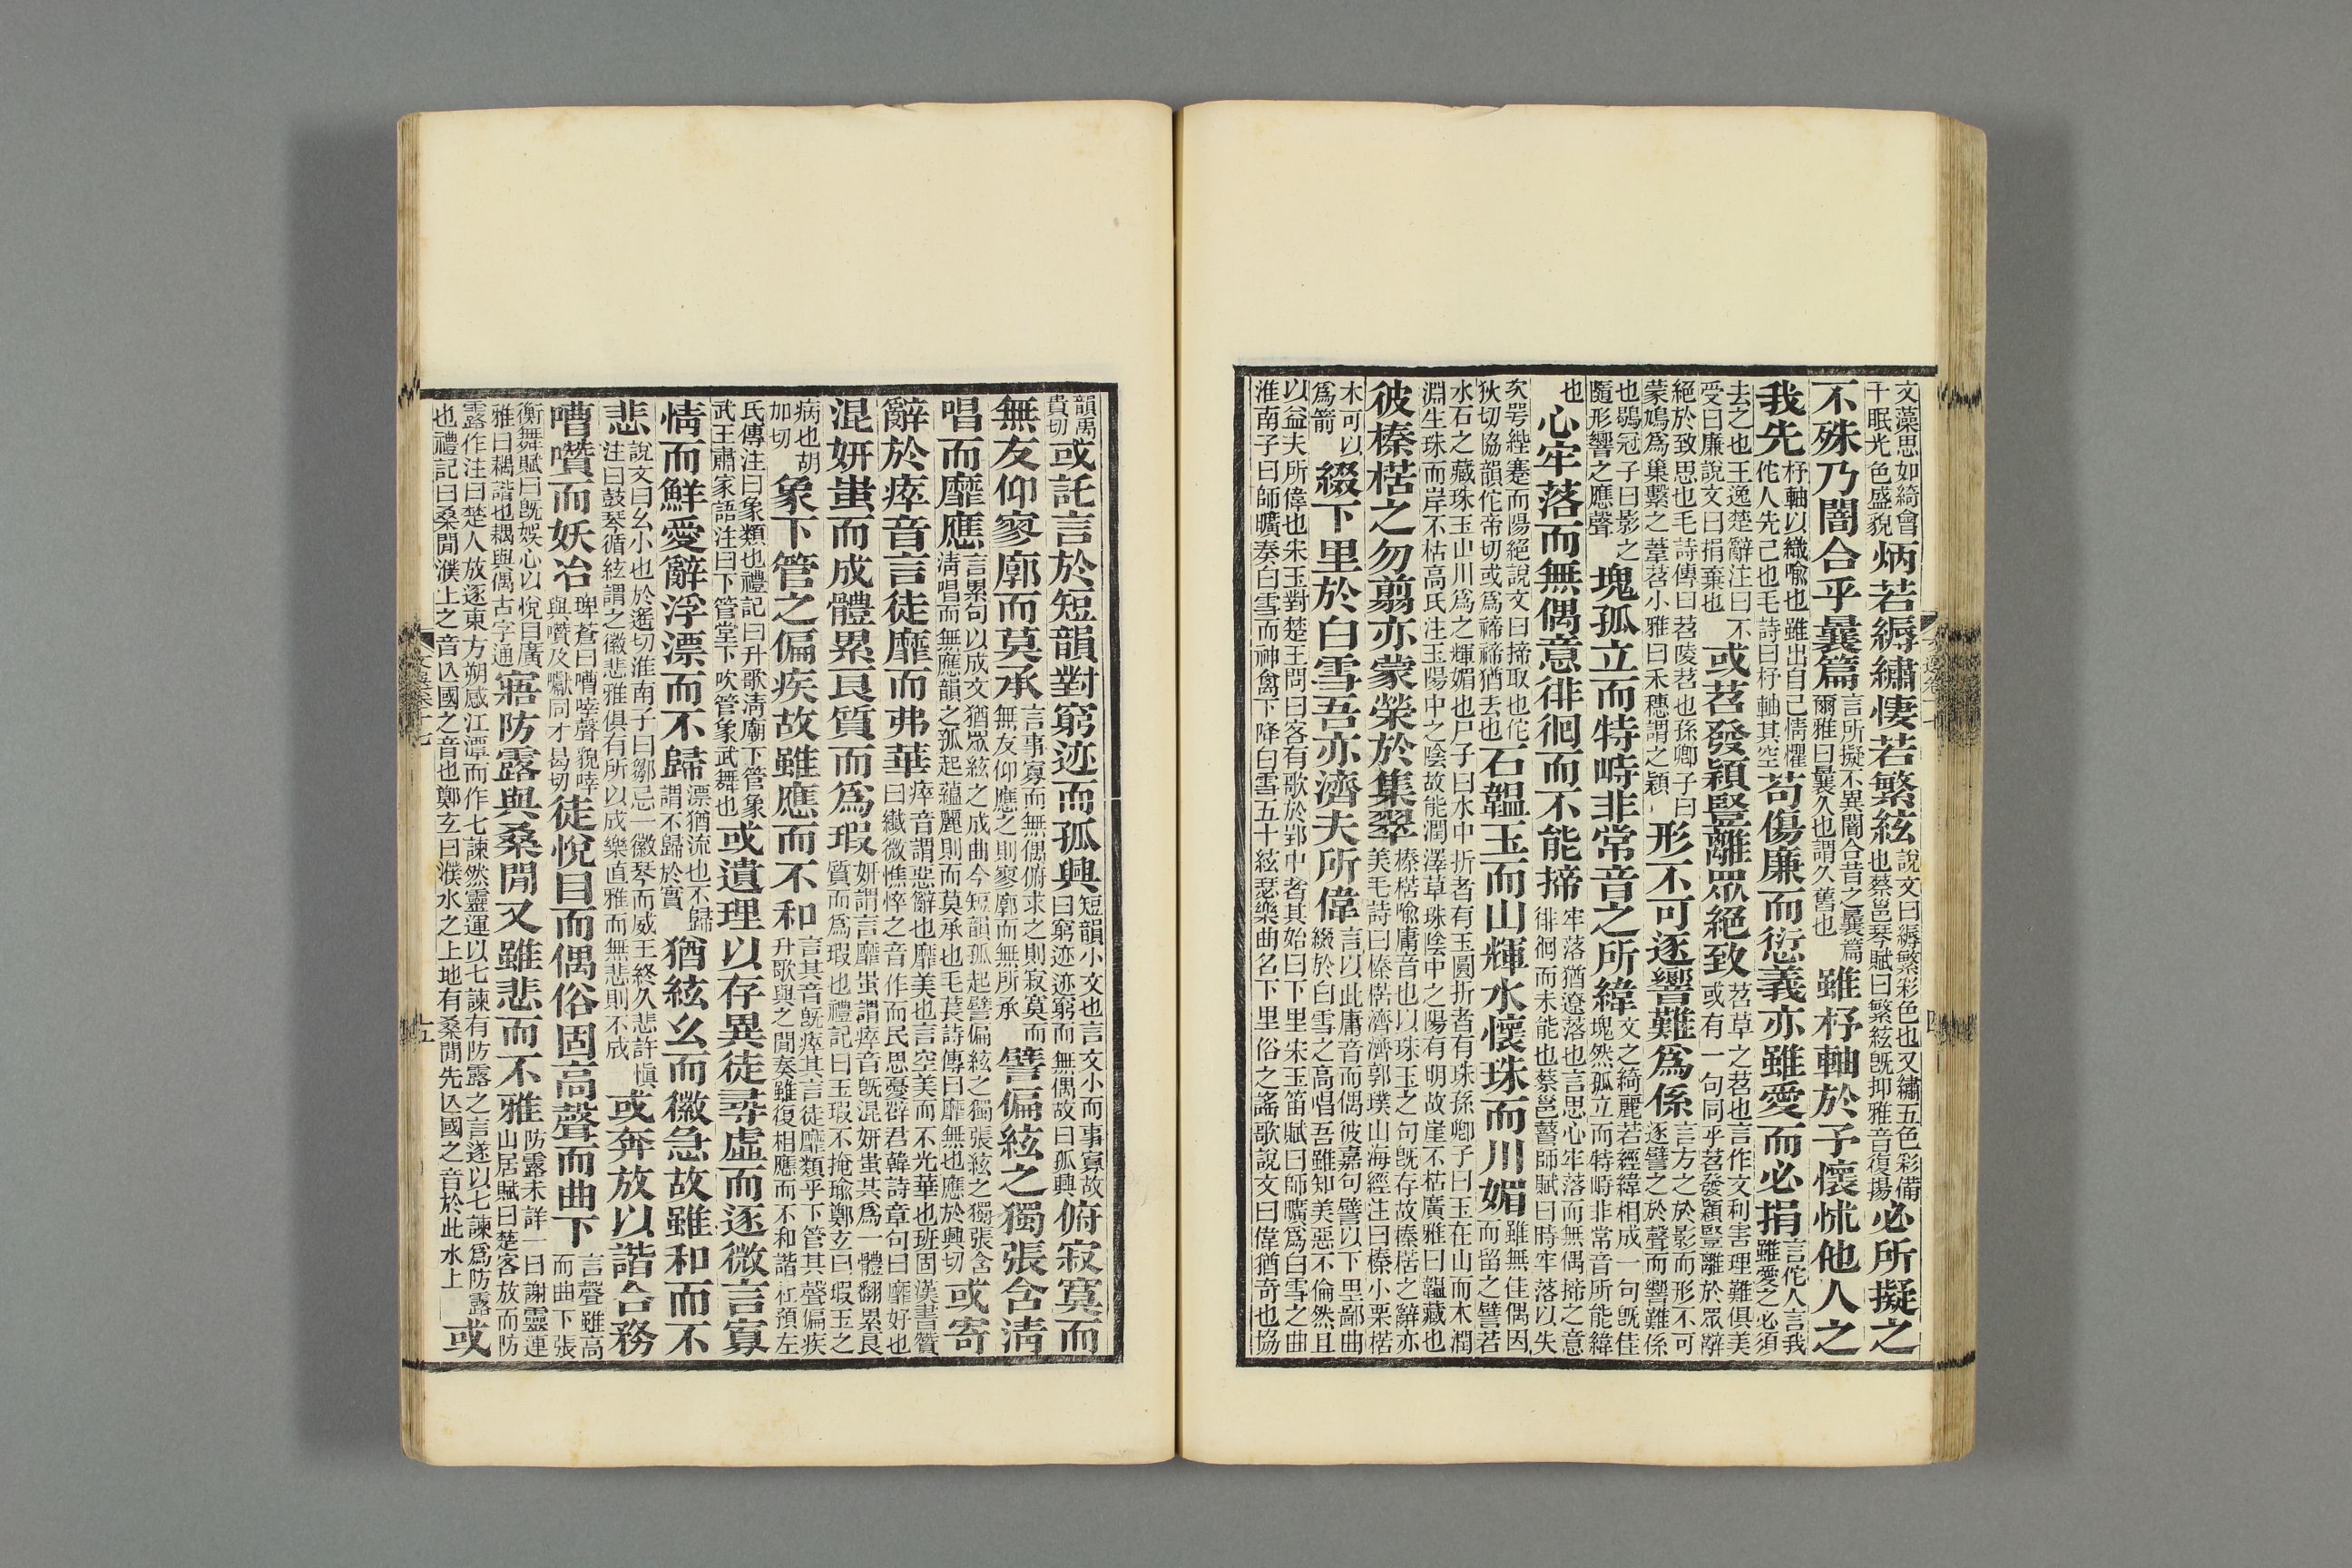 文藻思如綺會千眠光色盛貌炳若縟繡悽若繁絃說文曰縟繁彩色也又繡五色彩備也蔡邕琴賦曰繁絃旣抑雅音復揚必所擬之
不殊乃闇合乎曩篇言所擬不異闇合昔之曩篇爾雅曰曩久也謂久舊也雖杼軸於予懷怵他人之
我先杼軸以織喻也雖出自己情懼佗人先己也毛詩曰杼軸其空苟傷廉而衍義亦雖愛而必捐言佗人言我雖愛之必須
去之也王逸楚辭注曰不受曰廉說文曰捐棄也或苕發穎豎離眾絕致苕草之苕也言作文利害理難俱美或有一句同乎苕發穎豎離於眾辭
絕於致思也毛詩傳曰苕陵苕也孫卿子曰蒙鳩爲巢繫之葦苕小雅曰禾穗謂之穎形不可逐響難爲係言方之於影而形不可逐譬之於聲而響難係
也鶡冠子曰影之隨形響之應聲塊孤立而特峙非常音之所緯文之綺麗若經緯相成一句旣佳塊然孤立而特峙非常音所能緯
也心牢落而無偶意徘徊而不能揥牢落猶遼落也言思心牢落而無偶揥之意徘徊而未能也蔡邕瞽師賦曰時牢落以失
次咢絰蹇而陽絕說文曰揥取也佗狄切協韻佗帝切或爲禘禘猶去也石韞玉而山輝水懷珠而川媚雖無佳偶因而留之譬若
水石之藏珠玉山川爲之輝媚也尸子曰水中折者有玉圓折者有珠孫卿子曰玉在山而木潤淵生珠而岸不枯高氏注玉陽中之陰故能潤澤草珠陰中之陽有明故崖不枯廣雅曰韞藏也
彼榛楛之勿翦亦蒙榮於集翠榛楛喻庸音也以珠玉之句旣存故榛楛之辭亦美毛詩曰榛楛濟濟郭璞山海經注曰榛小栗楛
木可以爲箭綴下里於白雪吾亦濟夫所偉言以此庸音而偶彼嘉句譬以下里鄙曲綴於白雪之高唱吾雖知美惡不倫然且
以益夫所偉也宋玉對楚王問曰客有歌於郢中者其始曰下里宋玉笛賦曰師曠爲白雪之曲淮南子曰師曠奏白雪而神禽下降白雪五十絃瑟樂曲名下里俗之謠歌說文曰偉猶奇也協
韻禹貴切或託言於短韻對窮迹而孤興短韻小文也言文小而事寡故曰窮迹迹窮而無偶故曰孤興俯寂寞而
無友仰寥廓而莫承言事寡而無偶俯求之則寂寞而無友仰應之則寥廓而無所承譬偏絃之獨張含清
唱而靡應言累句以成文猶眾絃之成曲今短韻孤起譬偏絃之獨張絃之獨張含清唱而無應韻之孤起蘊麗則而莫承也毛萇詩傳曰靡無也應於興切或寄
辭於瘁音言徒靡而弗華瘁音謂惡辭也靡美也言空美而不光華也班固漢書贊曰纖微憔悴之音作而民思憂群君韓詩章句曰靡好也
混妍蚩而成體累良質而爲瑕妍謂言靡蚩謂瘁音旣混妍蚩共爲一體翻累良質而爲瑕也禮記曰玉瑕不掩瑜鄭玄曰瑕玉之
病也胡加切象下管之偏疾故雖應而不和言其音旣瘁其言徒靡類乎下管其聲偏疾升歌與之閒奏雖復相應而不和諧杜預左
氏傳注曰象類也禮記曰升歌淸廟下管象武王肅家語注曰下管堂下吹管象武舞也或遺理以存異徒尋虛而逐微言寡
情而鮮愛辭浮漂而不歸漂猶流也不歸謂不歸於實猶絃幺而徽急故雖和而不
悲說文曰幺小也於遙切淮南子曰鄒忌一徽琴而威王終夕悲許愼注曰鼓琴循絃謂之徽悲雅俱有所以成樂直雅而無悲則不成或奔放以諧合務
嘈囋而妖冶埤蒼曰嘈啐聲貌啐與囋及𡂐同才曷切徒悅目而偶俗固高聲而曲下言聲雖高而曲下張
衡舞賦曰旣娛心以悅目廣雅曰耦諧也耦與偶古字通寤防露與桑閒又雖悲而不雅防露未詳一曰謝靈運山居賦曰楚客放而防
露作注曰楚人放逐東方朔感江潭而作七諫然靈運以七諫有防露之言遂以七諫爲防露也禮記曰桑閒濮上之音亾國之音也鄭玄曰濮水之上地有桑閒先亾國之音於此水上或
文選卷十七
五